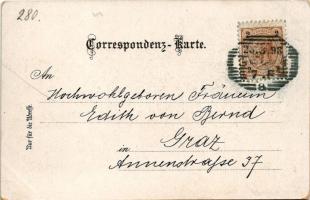 280.
Correspondenz-Karte.
An
Hochwohlgeboren Fräulein
Edith von Bernd
in Graz
Annenstraße 37
Nur für die Adresse.